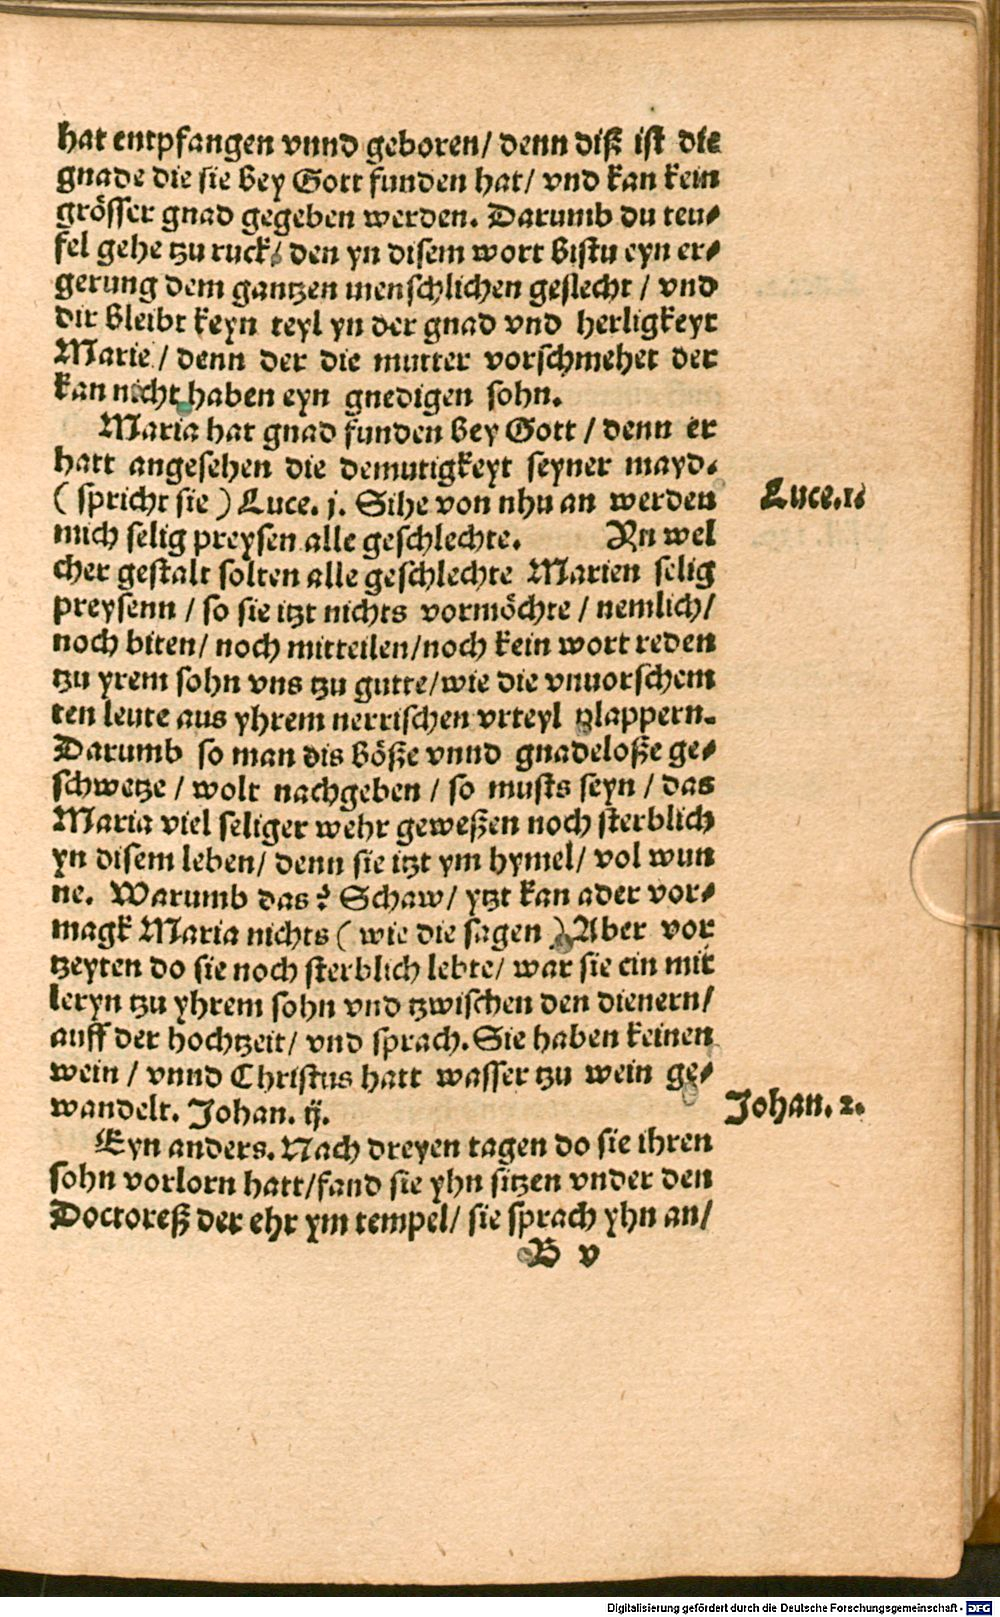 hat entpfangen vnnd geboren/ denn diß ist die
gnade die sie bey Gott funden hat/ vnd kan kein
grösser gnad gegeben werden. Darumb du teu⸗
fel gehe tzu ruck/ den yn disem wort bistu eyn er⸗
gerung dem gantzen menschlichen geslecht / vnd
dir bleibt keyn teyl yn der gnad vnd herligkeyt
Marie / denn der die mutter vorschmehet der
kan nicht haben eyn gnedigen sohn.
Maria hat gnad funden bey Gott / denn er
hatt angesehen die demutigkeyt seyner mayd.
( spricht sie ) Luce. j. Sihe von nhu an werden
mich selig preysen alle geschlechte. Yn wel
cher gestalt solten alle geschlechte Marien selig
preysenn / so sie itzt nichts vormöchte / nemlich/
noch biten/ noch mitteilen/noch kein wort reden
tzu yrem sohn vns tzu gutte/wie die vnuorschem
ten leute aus yhrem nerrischen vrteyl plappern.
Darumb so man dis böße vnnd gnadeloße ge⸗
schwetze / wolt nachgeben / so musts seyn / das
Maria viel seliger wehr geweßen noch sterblich
yn disem leben/ denn sie itzt ym hymel/ vol wun
ne. Warumb das? Schaw/ ytzt kan ader vor⸗
magk Maria nichts ( wie die sagen ) Aber vor
tzeyten do sie noch sterblich lebte/ war sie ein mit
leryn tzu yhrem sohn vnd tzwischen den dienern/
auff der hochtzeit/ vnd sprach. Sie haben keinen
wein / vnnd Christus hatt wasser tzu wein ge⸗
wandelt. Johan. ij.
Eyn anders. Nach dreyen tagen do sie ihren
sohn vorlorn hatt/fand sie yhn sitzen vnder den
Doctoreß der ehr ym tempel/ sie sprach yhn an/
B v
Luce.1.
Johan. 2.
Digitalisierung gefördert durch die Deutsche Forschungsgemeinschaft - DFG